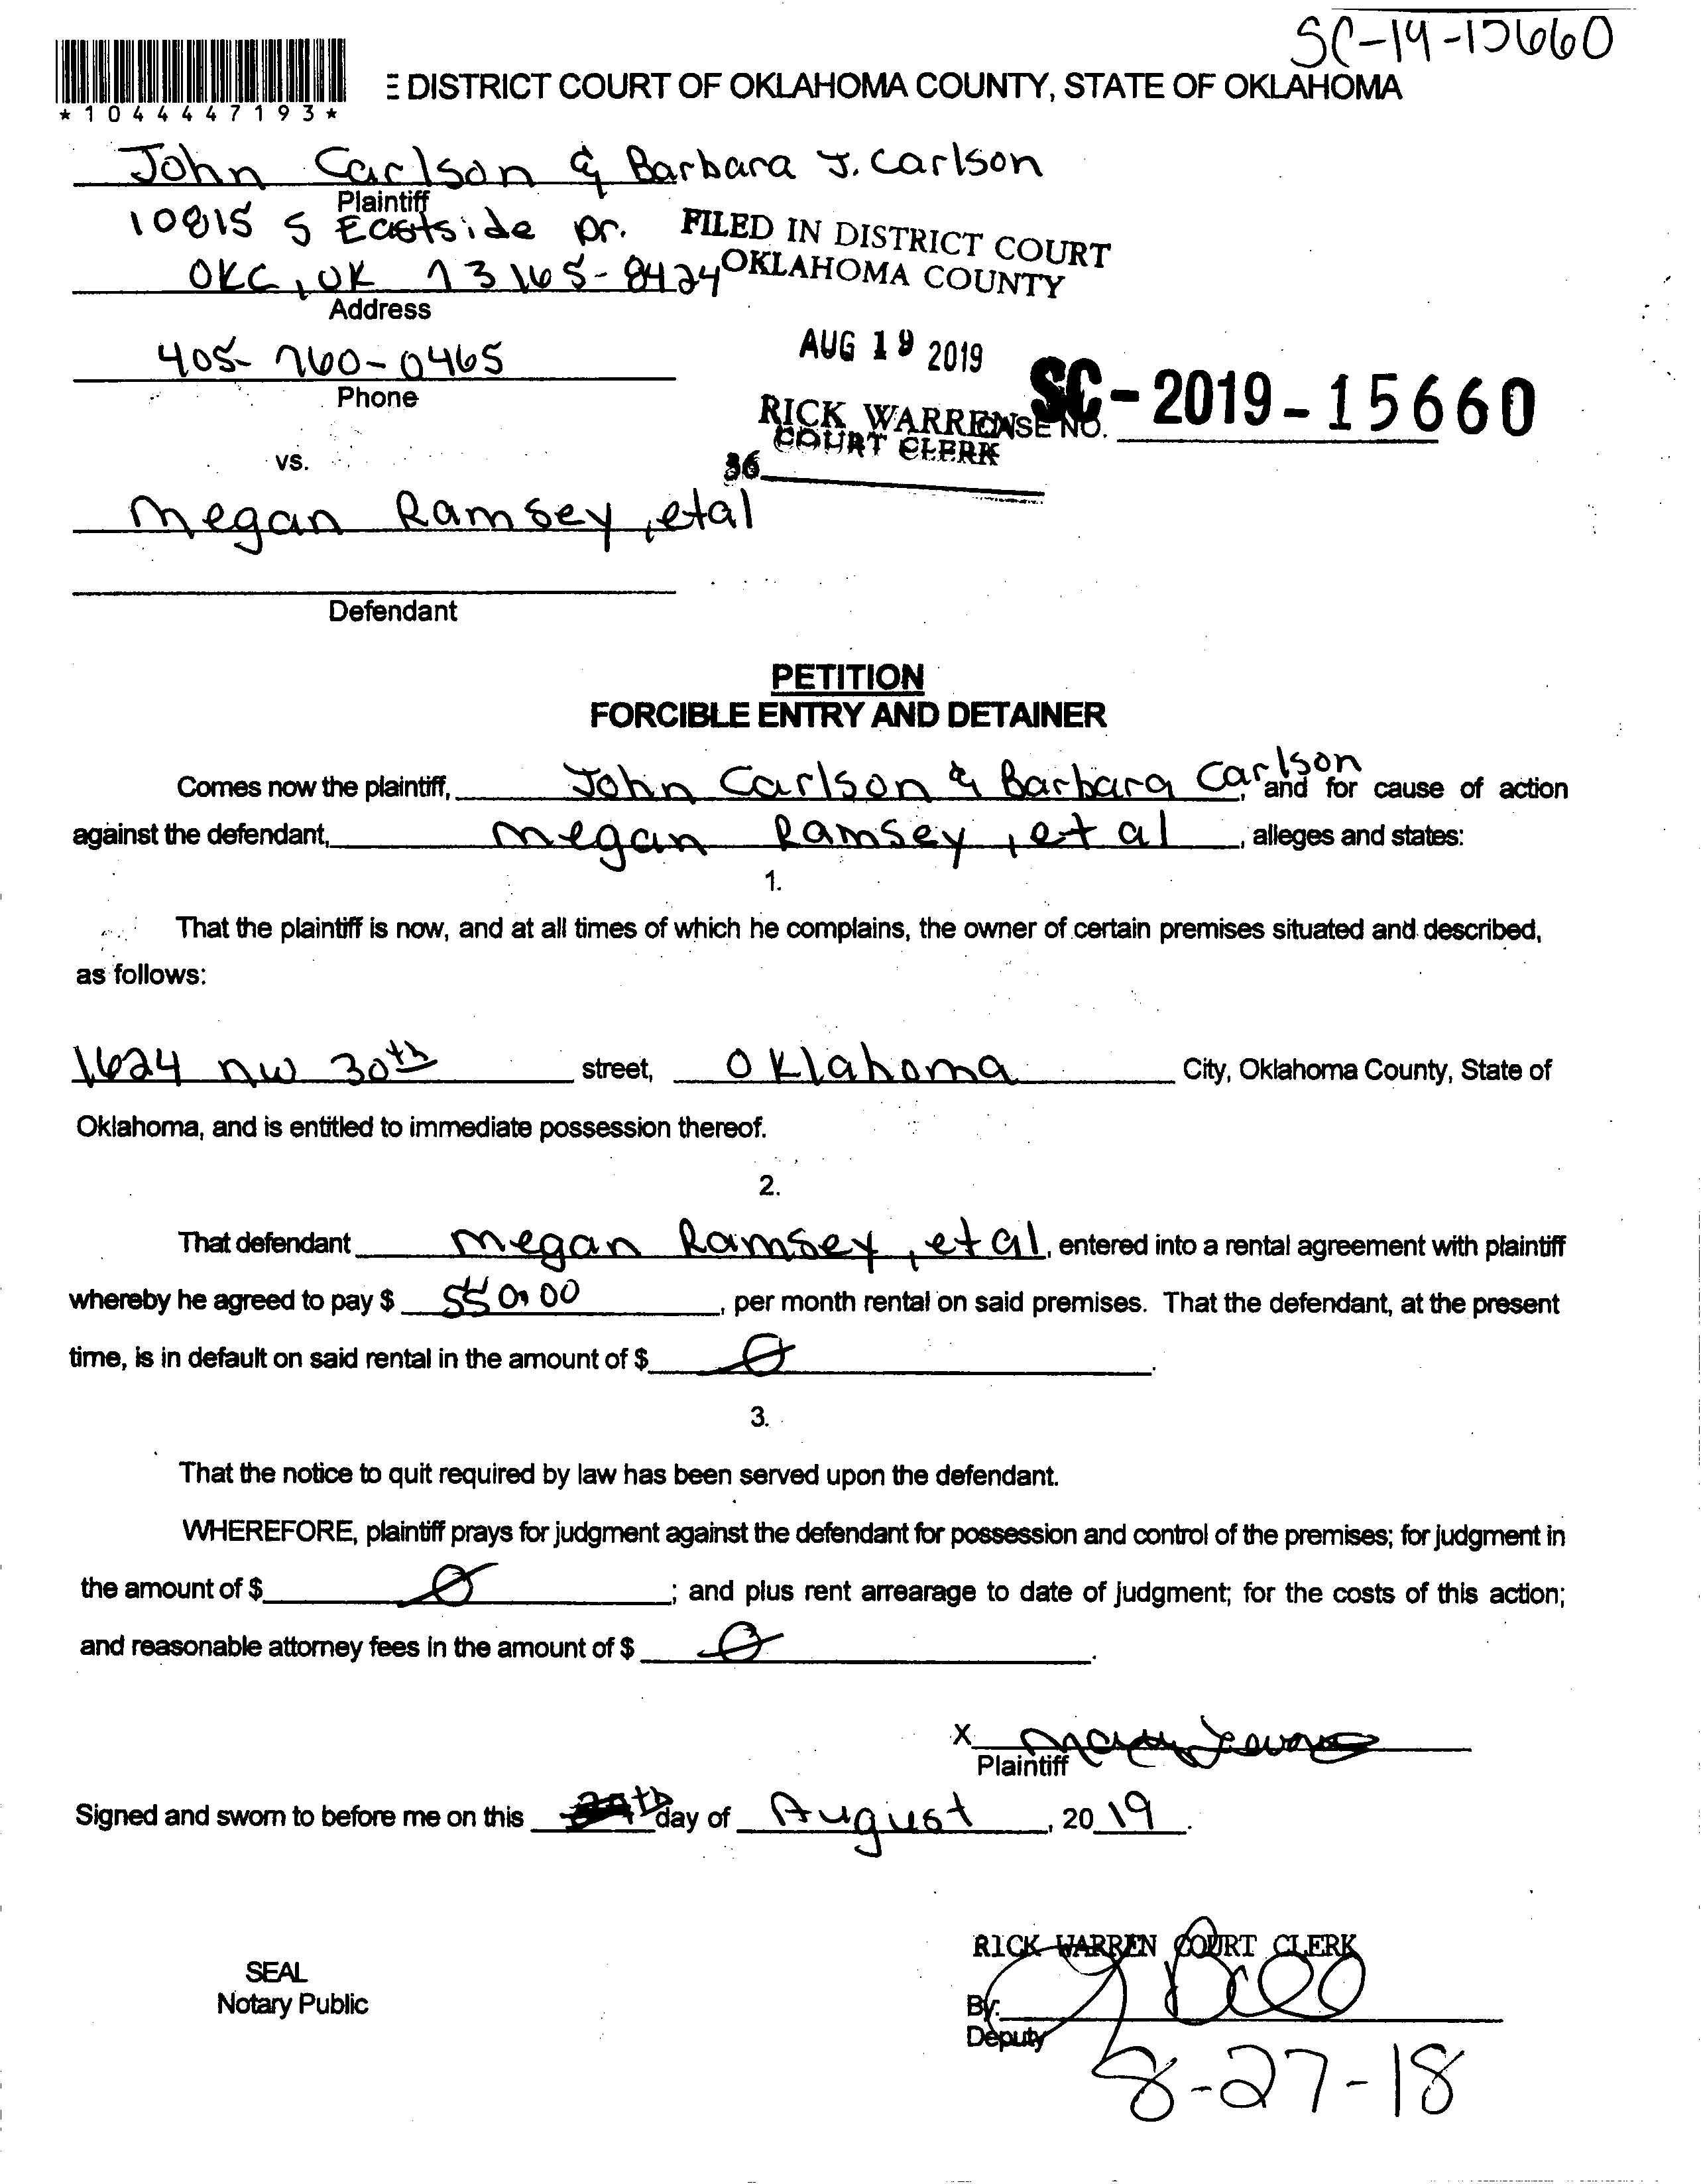 SC-19-15660
DISTRICT COURT OF OKLAHOMA COUNTY, STATE OF OKLAHOMA
*1044447193*
John Carlson & Barbara J. Carlson
Plaintiff
10815 S Eastside Dr.
OKC, OK 73165-8424
Address
FILED IN DISTRICT COURT
OKLAHOMA COUNTY
405-760-0465
Phone
AUG 19 2019
RICK WARREN
COURT CLERK
36
CASE NO. SC-2019-15660
vs.
Megan Ramsey, etal
Defendant
PETITION
FORCIBLE ENTRY AND DETAINER
Comes now the plaintiff, John Carlson & Barbara Carlson, and for cause of action
against the defendant, Megan Ramsey, et al, alleges and states:
1.
That the plaintiff is now, and at all times of which he complains, the owner of certain premises situated and described,
as follows:
1624 NW 30th street, Oklahoma City, Oklahoma County, State of
Oklahoma, and is entitled to immediate possession thereof.
2.
That defendant Megan Ramsey, et al, entered into a rental agreement with plaintiff
whereby he agreed to pay $ 550.00, per month rental on said premises. That the defendant, at the present
time, is in default on said rental in the amount of $ Ø.
3.
That the notice to quit required by law has been served upon the defendant.
WHEREFORE, plaintiff prays for judgment against the defendant for possession and control of the premises; for judgment in
the amount of $ Ø; and plus rent arrearage to date of judgment; for the costs of this action;
and reasonable attorney fees in the amount of $ Ø.
X
Plaintiff
Signed and sworn to before me on this day of August, 2019.
RICK WARREN COURT CLERK
SEAL
Notary Public
By:
Deputy
8-27-18